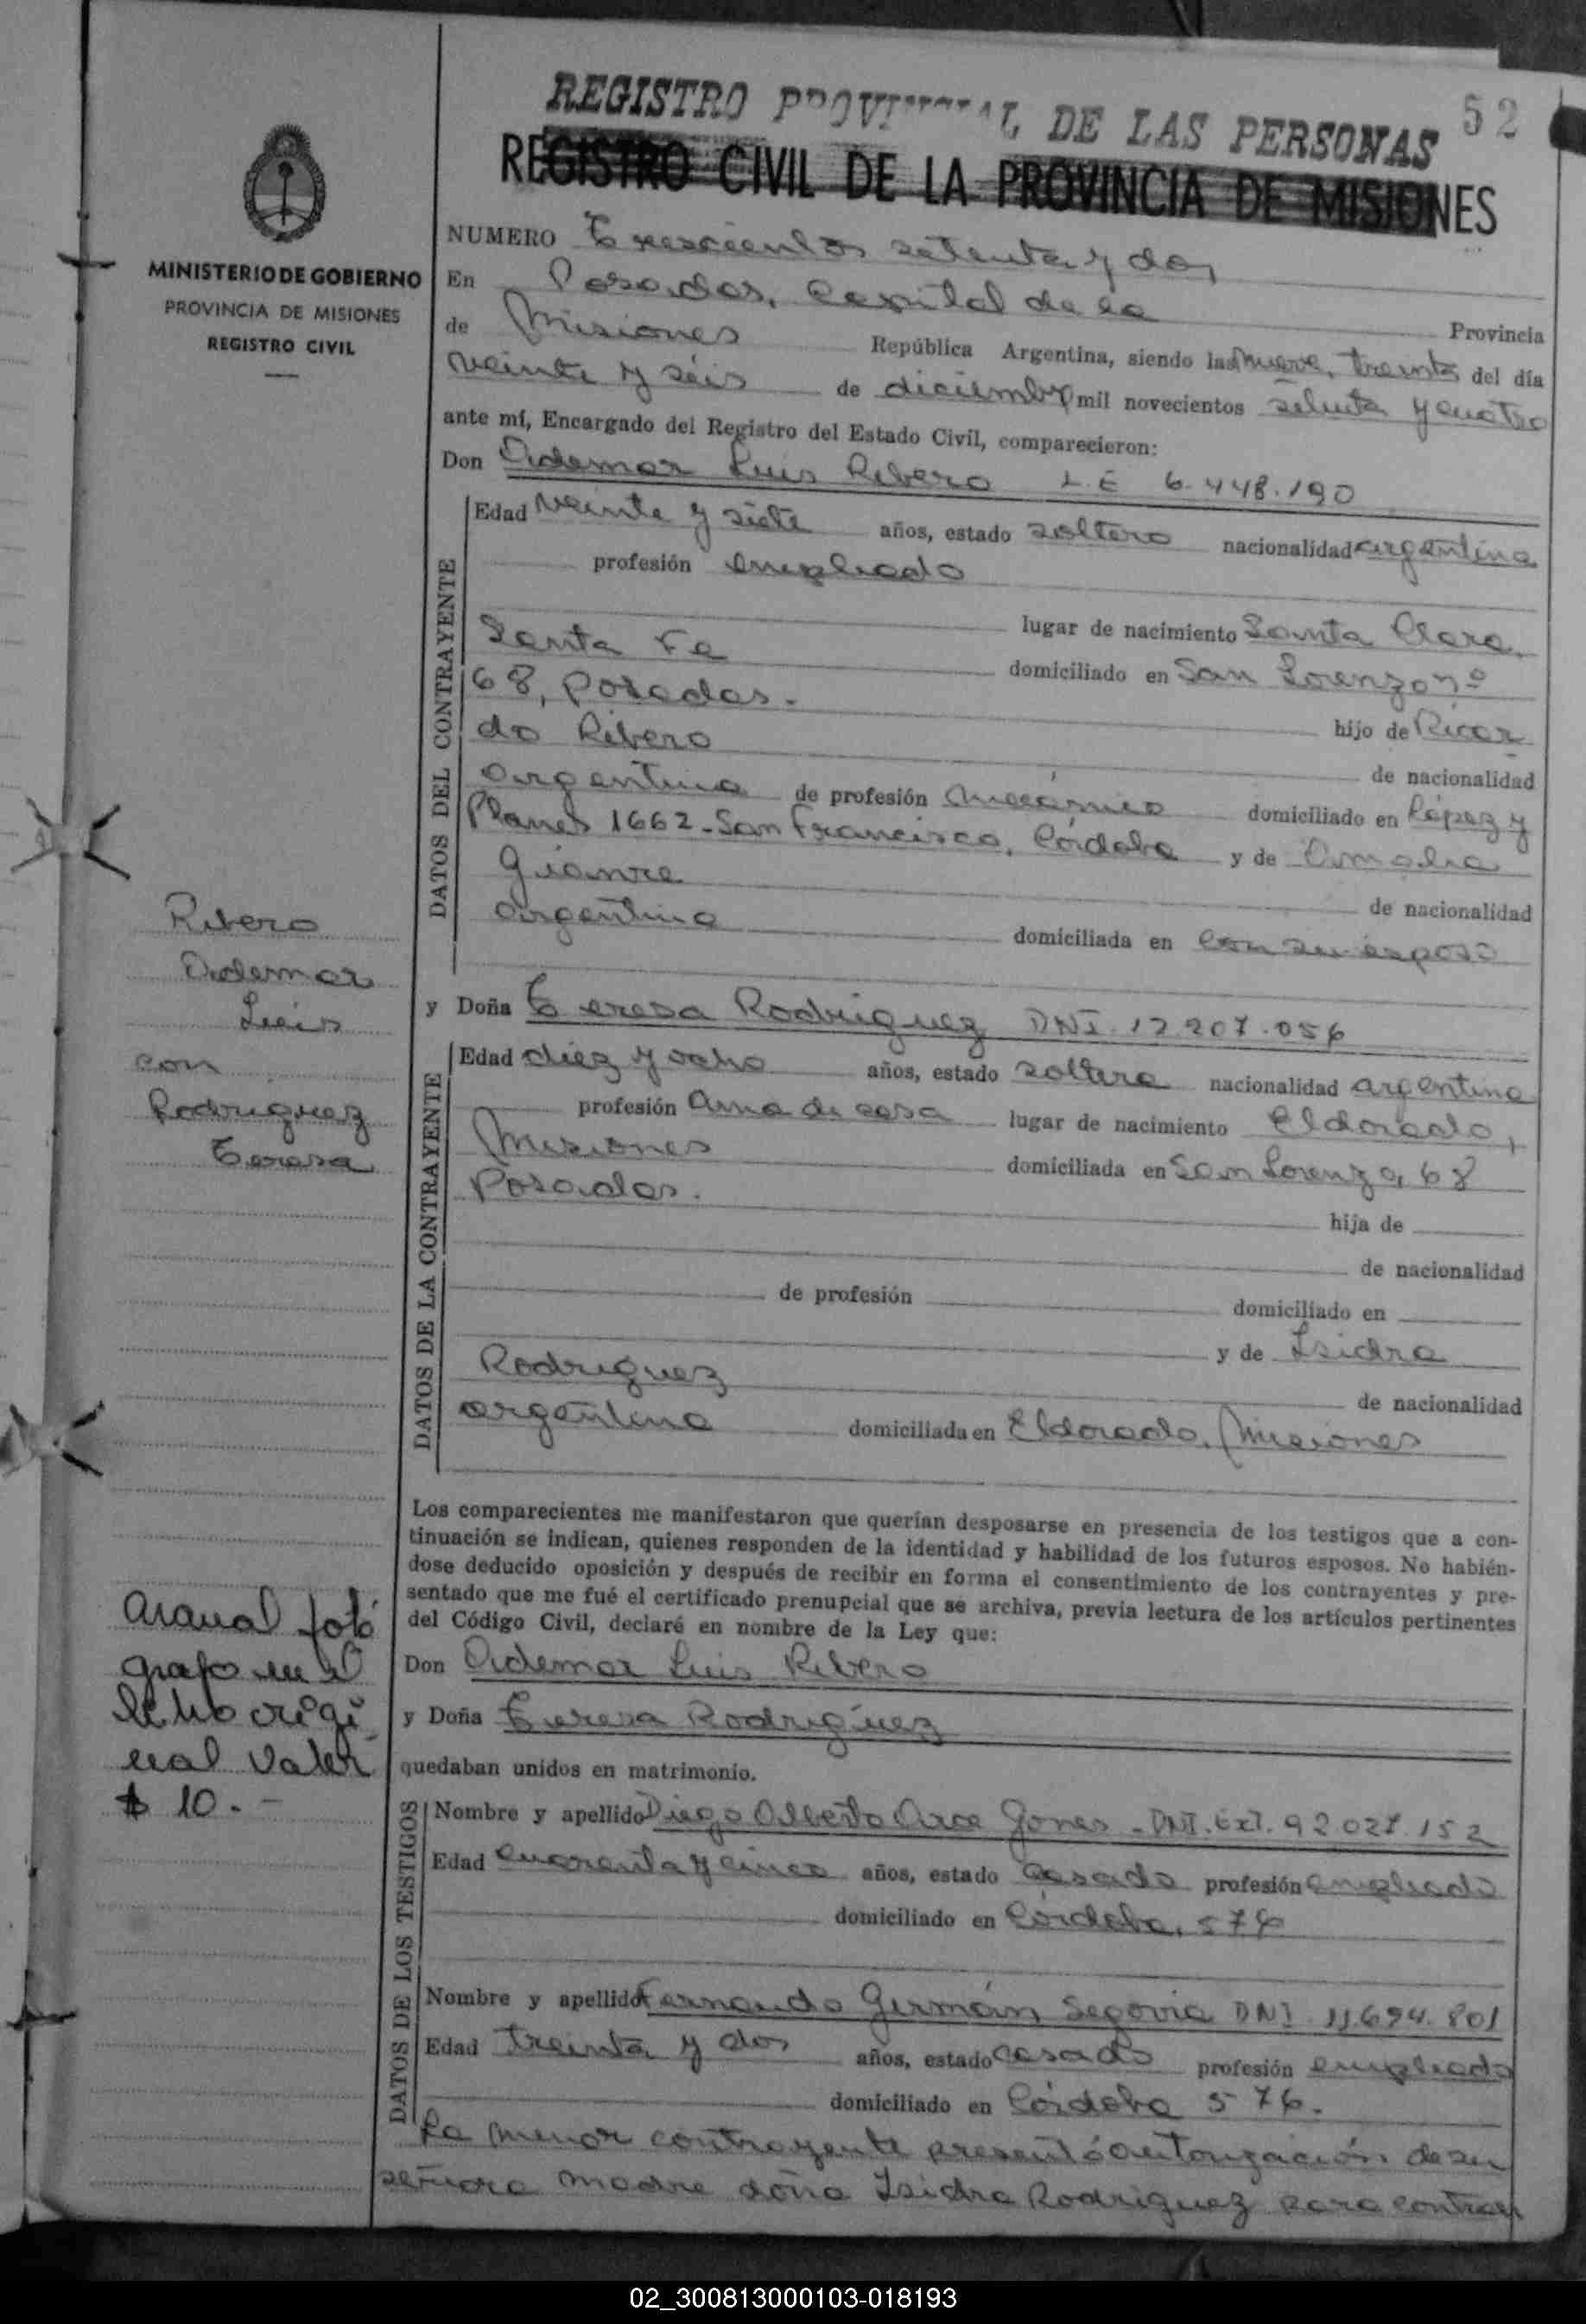 REGISTRO PROVINCIAL DE LAS PERSONAS 52
REGISTRO CIVIL DE LA PROVINCIA DE MISIONES
MINISTERIO DE GOBIERNO
PROVINCIA DE MISIONES
REGISTRO CIVIL
NUMERO Trescientos setenta y dos
En Posadas, Capital de la Provincia
de Misiones República Argentina, siendo las nueve, treinta del día
veinte y séis de diciembre mil novecientos setenta y cuatro
ante mí, Encargado del Registro del Estado Civil, comparecieron:
Don Ademar Luis Ribero L.E 6.448.190
DATOS DEL CONTRAYENTE
Edad veinte y siete años, estado soltero nacionalidad argentina
profesión empleado
lugar de nacimiento Santa Clara,
Santa Fe domiciliado en San Lorenzo nº
68, Posadas. hijo de Ricar
do Ribero de nacionalidad
argentina de profesión mecánico domiciliado en López y
Planes 1662 - San Francisco, Córdoba y de Amalia
de nacionalidad
argentina domiciliada en con su esposo
Ribero
Ademar
Luis
con
Rodriguez
Teresa
y Doña Teresa Rodriguez DNI. 12.207.056
DATOS DE LA CONTRAYENTE
Edad diez y ocho años, estado soltera nacionalidad argentina
profesión ama de casa lugar de nacimiento Eldorado,
Misiones domiciliada en San Lorenzo, 68
Posadas. hija de
de nacionalidad
de profesión domiciliado en
y de Isidra
Rodriguez de nacionalidad
argentina domiciliada en Eldorado, Misiones
Los comparecientes me manifestaron que querían desposarse en presencia de los testigos que a con-
tinuación se indican, quienes responden de la identidad y habilidad de los futuros esposos. No habién-
dose deducido oposición y después de recibir en forma el consentimiento de los contrayentes y pre-
sentado que me fué el certificado prenupcial que se archiva, previa lectura de los artículos pertinentes
del Código Civil, declaré en nombre de la Ley que:
Don Ademar Luis Ribero
y Doña Teresa Rodriguez
quedaban unidos en matrimonio.
Arancel foto
grafo en el
libro origi
nal Valor
$ 10.-
DATOS DE LOS TESTIGOS
Nombre y apellido Diego Alberto Arce Jones - DNI. Ext. 92.027.152
Edad cuarenta y cinco años, estado casado profesión empleado
domiciliado en Córdoba, 576
Nombre y apellido Fernando Germán Segovia DNI 11.694.801
Edad treinta y dos años, estado casado profesión empleado
domiciliado en Córdoba 576.
La menor contrayente presentó autorización de su
señora madre doña Isidra Rodriguez para contraer
02_300813000103-018193